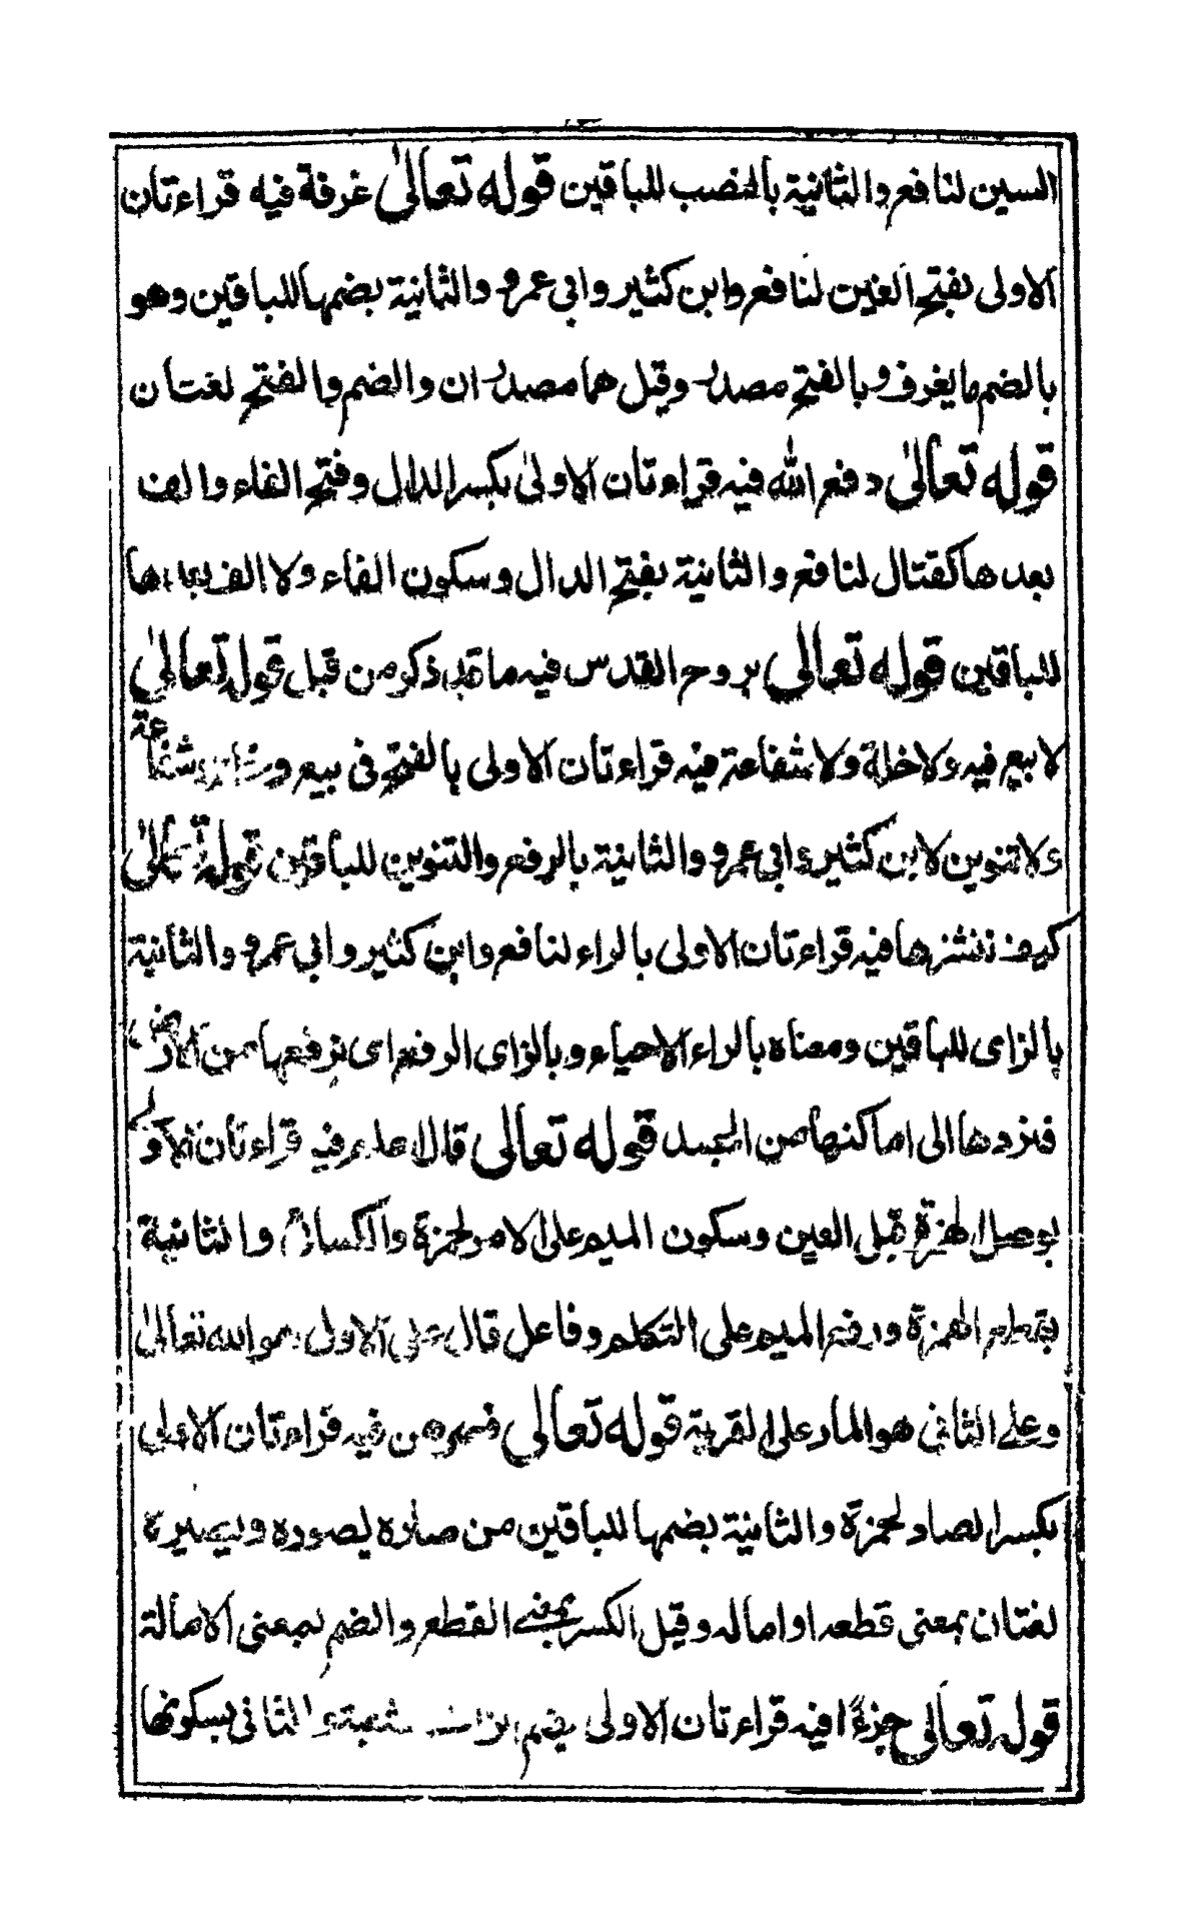 السين لنافع والثانية بالنصب للباقين قوله تعالى غرفة فيه قراءتان
الاولى بفتح الغين لنافع وابن كثير وابي عمرو والثانية بضمها للباقين وهو
بالضم ما يغرف وبالفتح مصدر وقيل هما مصدران والضم والفتح لغتان
قوله تعالى دفع الله فيه قراءتان الاولى بكسر الدال وفتح الفاء والف
بعدها كقتال لنافع والثانية بفتح الدال وسكون الفاء ولا الف بعدها
للباقين قوله تعالى بروح القدس فيه ما قد ذكر من قبل قوله تعالى
لا بيع فيه ولا خلة ولا شفاعة فيه قراءتان الاولى بالفتح في بيع و شفاعة
ولا تنوين لابن كثير وابي عمرو والثانية بالرفع والتنوين للباقين قوله تعالى
كيف ننشزها فيه قراءتان الاولى بالراء لنافع وابن كثير وابي عمرو والثانية
بالزاى للباقين ومعناه بالراء الاحياء وبالزاى الرفع اى نرفعها من الارض
فنردها الى اماكنها من الجسد قوله تعالى قال اعلم فيه قراءتان الاولى
بوصل الهمزة قبل العين وسكون الميم على الامر لحمزة والكسائي والثانية
بقطع الهمزة ورفع الميم على التكلم وفاعل قال على الاول هو الله تعالى
وعلى الثاني هو المار على القرية قوله تعالى فصرهن فيه قراءتان الاولى
بكسر الصاد لحمزة والثانية بضمها للباقين من صاره يصوره ويصيره
لغتان بمعنى قطعه او اماله وقيل الكسر بمعنى القطع والضم بمعنى الامالة
قوله تعالى جزءًا فيه قراءتان الاولى بضم شعبة والثاني بسكونها